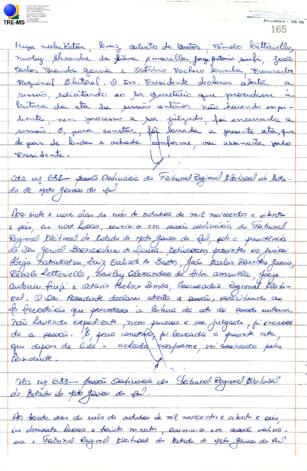 TRE-MS
165
Hugo                   Luiz Calixto de Bastos, Rêmolo Letteriello,
Marley Alexandre da Silva Amarilla, Jorge Antonio Siufi, João
Carlos Brandes Garcia e Octávio Pacheco Lomba, Procurador
Regional Eleitoral. O Des. Presidente declarou aberta a
sessão, solicitando ao Sr. Secretário que procedesse à
leitura da ata da sessão anterior. Não havendo expe-
diente, nem processo a ser julgado, foi encerrada a
sessão. E, para constar, foi lavrada a presente ata, que
depois de lida e achada conforme, vai assinada pelo
Presidente.
Ata nº 632 - Sessão Ordinária do Tribunal Regional Eleitoral do Esta-
do de Mato Grosso do Sul
Aos vinte e                dias do mês de outubro de mil novecentos e oitenta
e seis, às       horas, reuniu-se em sessão ordinária o Tribunal
Regional Eleitoral do Estado de Mato Grosso do Sul, sob a presidência
do Des.
Luiz Calixto de Bastos, João Carlos Brandes Garcia,
Rêmolo Letteriello, Marley Alexandre da Silva Amarilla, Jorge
Antonio Siufi e Octávio Pacheco Lomba, Procurador Regional Eleito-
ral. O Des. Presidente declarou aberta a sessão, solicitando ao
Sr. Secretário que procedesse à leitura da ata da sessão anterior.
Não havendo expediente, nem processo a ser julgado, foi encerra-
da a sessão. E, para constar, foi lavrada a presente ata,
que depois de lida e achada conforme, vai assinada pelo
Presidente.
Ata nº 633 - Sessão Ordinária do Tribunal Regional Eleitoral
do Estado de Mato Grosso do Sul
Ao                dias do mês de outubro de mil novecentos e oitenta e seis,
às dezessete horas e trinta minutos, reuniu-se em sessão ordiná-
ria o Tribunal Regional Eleitoral do Estado de Mato Grosso do Sul,